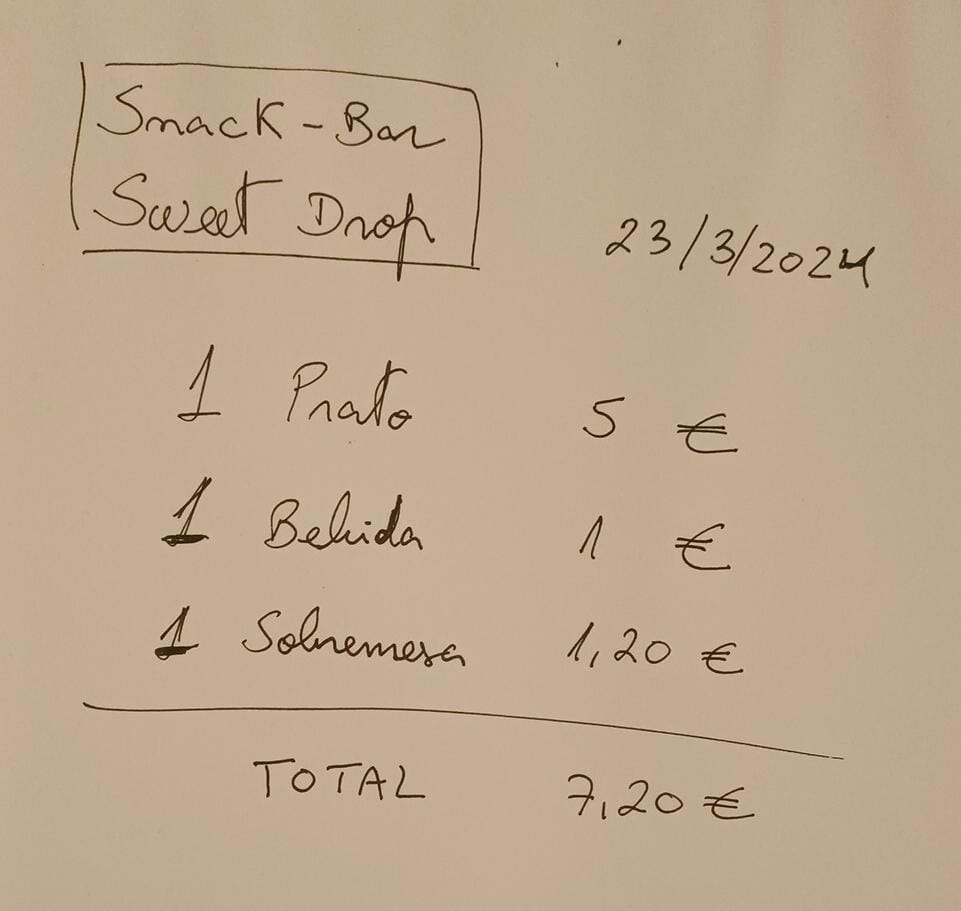 Snack-Bar
Sweet Drop
23/3/2024
1 Prato 5 €
1 Bebida 1 €
1 Sobremesa 1,20 €
TOTAL 7,20 €